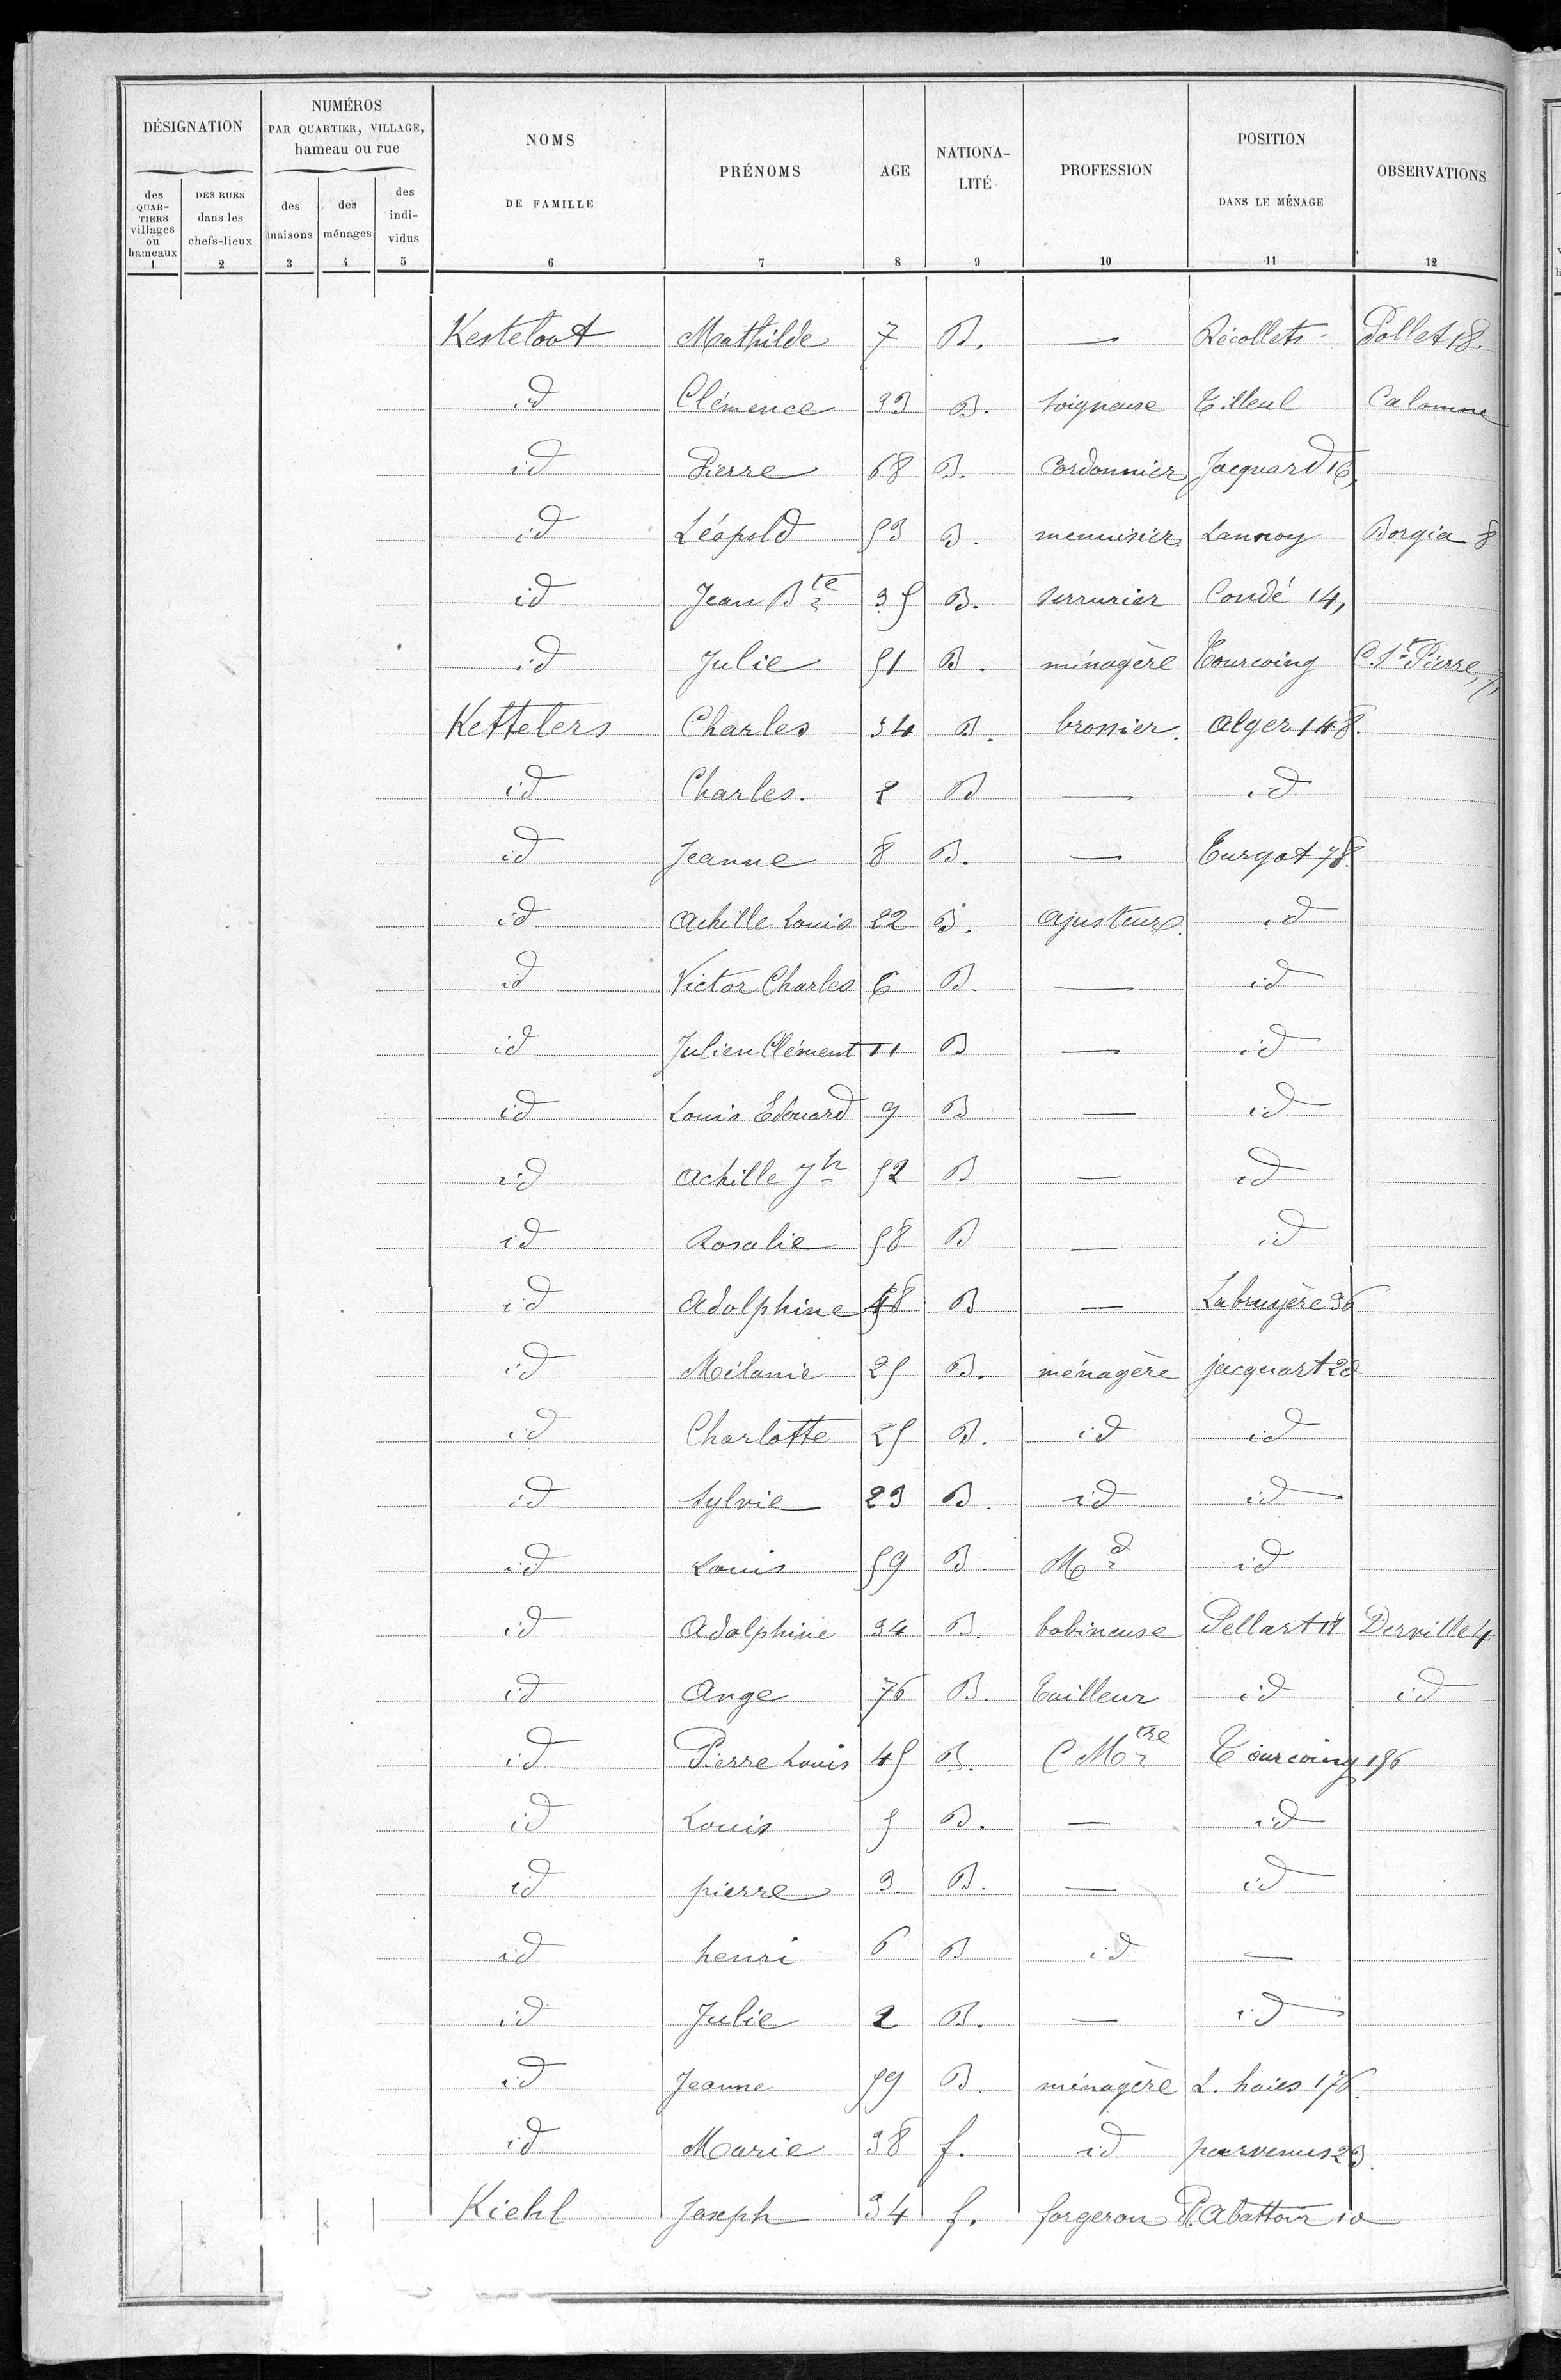 DÉSIGNATION
NUMÉROS PAR QUARTIER, VILLAGE, hameau ou rue
NOMS DE FAMILLE
PRÉNOMS
AGE
NATIONA-LITÉ
PROFESSION
POSITION DANS LE MÉNAGE
OBSERVATIONS
des QUAR-TIERS villages ou hameaux
DES RUES dans les chefs-lieux
des maisons
des ménages
des indi-vidus
1 2 3 4 5 6 7 8 9 10 11 12
Kesteloot Mathilde 7 B. — Récollets Pollet 18.
id Clémence 33 B. soigneuse Tilleul Calonne
id Pierre 68 B. Cordonnier Jacquard 16,
id Léopold 53 B. menuisier Lannoy Borgia 8
id Jean Bte 35 B. serrurier Condé 14,
id Julie 51 B. ménagère Tourcoing C. St Pierre, 7,
Kettelers Charles 34 B. brossier. Alger 148.
id Charles. 2 B — id
id Jeanne 8 B. — Turgot 78.
id Achille Louis 22 B. Ajusteur. id
id Victor Charles 6 B. — id
id Julien Clément 11 B — id
id Louis Edouard 9 B — id
id Achille Jh 52 B — id
id Rosalie 58 B — id
id Adolphine 48 B — Labruyère 36
id Mélanie 25 B. ménagère jacquart 28
id Charlotte 25 B. id id
id Sylvie 23 B. id id
id Louis 59 B. Md id
id Adolphine 34 B. bobineuse Pellart 11 Derville 4
id Ange 76 B. Tailleur id id
id Pierre Louis 45 B. C Mtre Tourcoing 156
id Louis 5 B. — id
id pierre 3. B. — id
id henri 6 B id —
id Julie 2 B. — id
id Jeanne 59 B. ménagère L. haies 176.
id Marie 38 f. id parvenus 23.
Kiehl Joseph 34 f. forgeron P. Abattoir 10